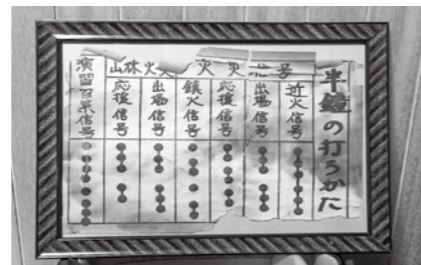 半鐘の打ちかた
火災信号
近火信号
出場信号
応援信号
鎮火信号
山林火災
出場信号
応援信号
演習召集信号